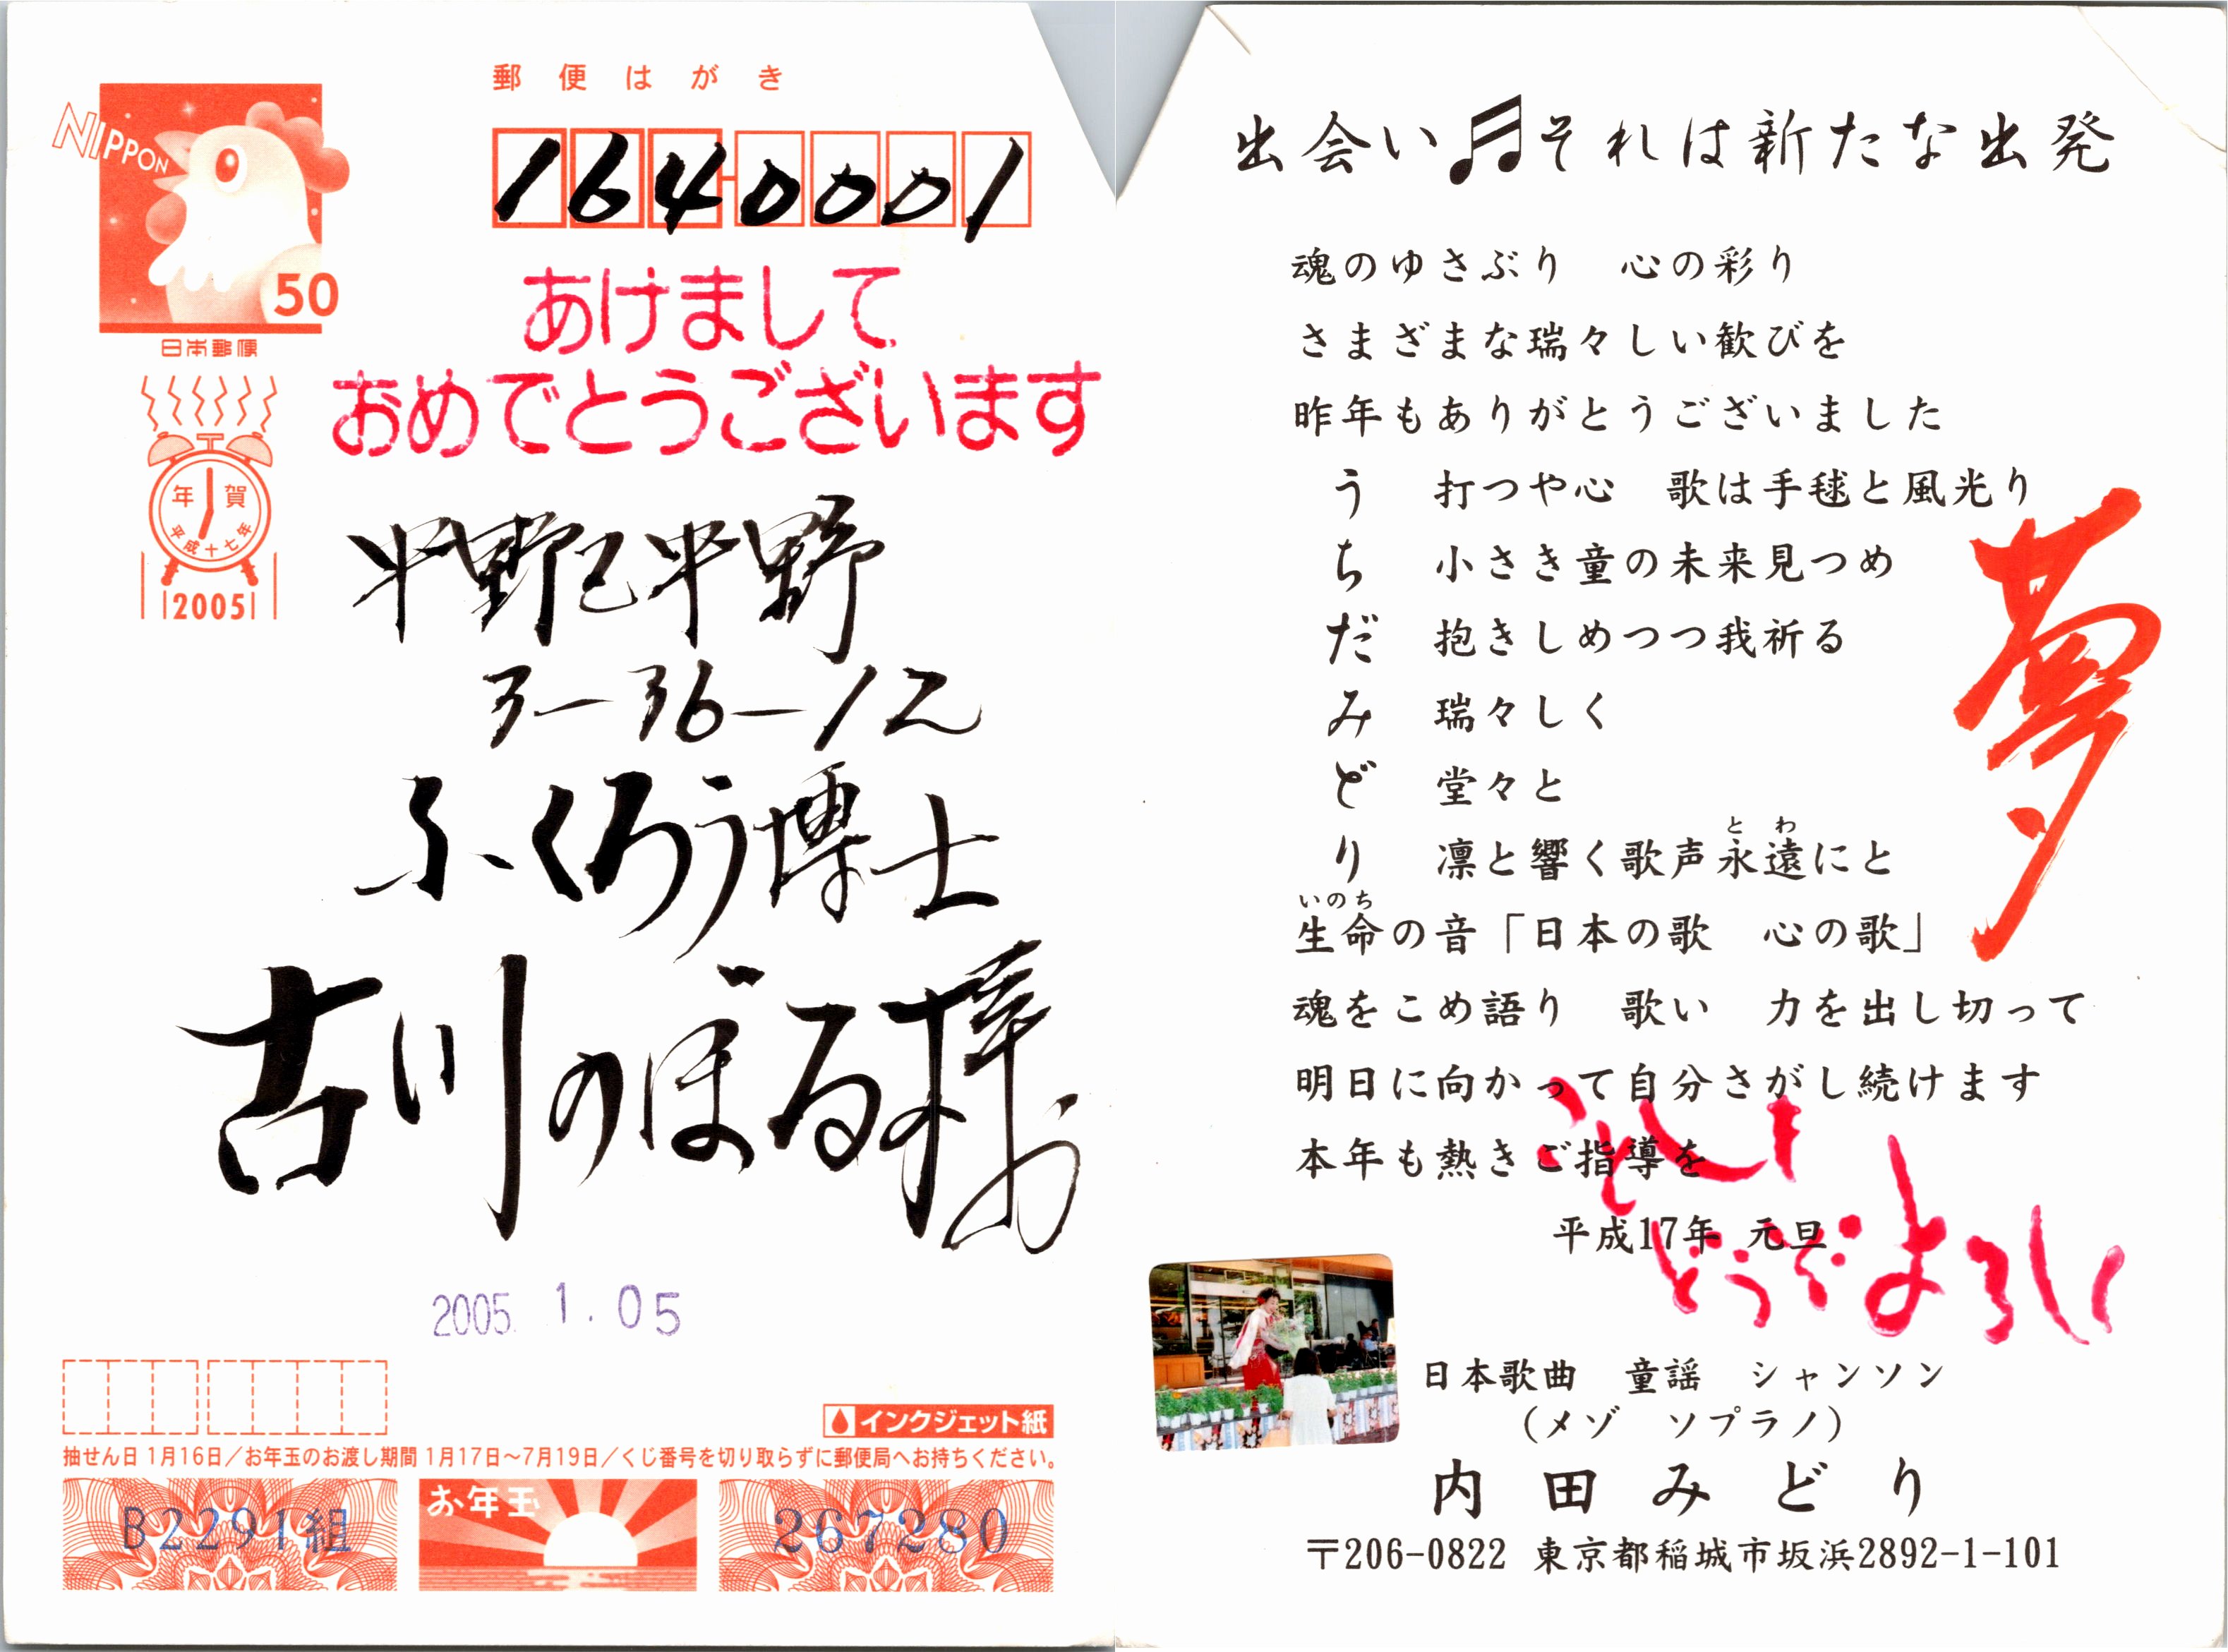 郵便はがき
NIPPON
50
日本郵便
1640001
あけまして
おめでとうございます
年賀
平成十七年
2005
中野区中野
3-36-12
ふくろう博士
古川のぼる様
2005. 1. 05
インクジェット紙
抽せん日 1月16日/お年玉のお渡し期間 1月17日~7月19日/くじ番号を切り取らずに郵便局へお持ちください。
B2291組
お年玉
267280
出会い♫それは新たな出発
魂のゆさぶり 心の彩り
さまざまな瑞々しい歓びを
昨年もありがとうございました
う 打つや心 歌は手毬と風光り
ち 小さき童の未来見つめ
だ 抱きしめつつ我祈る
み 瑞々しく
ど 堂々と
り 凛と響く歌声永遠にと
とわ
いのち
生命の音「日本の歌 心の歌」
魂をこめ語り 歌い 力を出し切って
明日に向かって自分さがし続けます
本年も熱きご指導を
平成17年 元旦
夢
ことしも
どうぞよろしく
日本歌曲 童謡 シャンソン
(メゾ ソプラノ)
内田みどり
〒206-0822 東京都稲城市坂浜2892-1-101